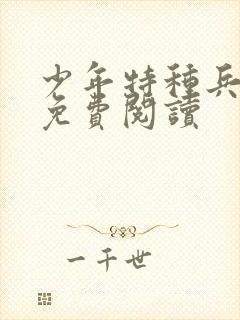 少年特种兵
免費閱讀
一千世